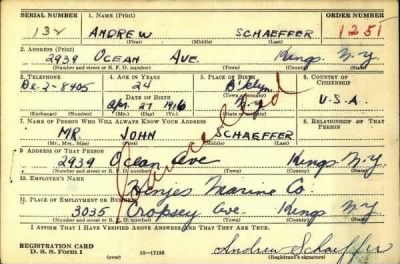 SERIAL NUMBER 1. NAME (Print) ORDER NUMBER
132 ANDREW SCHAEFFER 1251
(First) (Middle) (Last)
2. ADDRESS (Print)
2939 OCEAN AVE. Kings N-Y
(Number and street or R. F. D. number) (Town) (County) (State)
3. TELEPHONE 4. AGE IN YEARS 5. PLACE OF BIRTH 6. COUNTRY OF CITIZENSHIP
De-2-8405 24 B'klyn
DATE OF BIRTH (Town or county)
Apr. 27 1916 N-Y U.S.A.
(Exchange) (Number) (Mo.) (Day) (Yr.) (State or country)
7. NAME OF PERSON WHO WILL ALWAYS KNOW YOUR ADDRESS 8. RELATIONSHIP OF THAT PERSON
MR. JOHN SCHAEFFER
(Mr., Mrs., Miss) (First) (Middle) (Last)
Cancelled
9. ADDRESS OF THAT PERSON
2939 Ocean Ave Kings N-Y
(Number and street or R. F. D. number) (Town) (County) (State)
10. EMPLOYER'S NAME
Henjes Marine Co.
11. PLACE OF EMPLOYMENT OR BUSINESS
3035 Cropsey Ave. Kings N Y
(Number and street or R. F. D. number) (Town) (County) (State)
I AFFIRM THAT I HAVE VERIFIED ABOVE ANSWERS AND THAT THEY ARE TRUE.
REGISTRATION CARD
D. S. S. Form 1 (over) 16—17105 Andrew Schaeffer
(Registrant's signature)